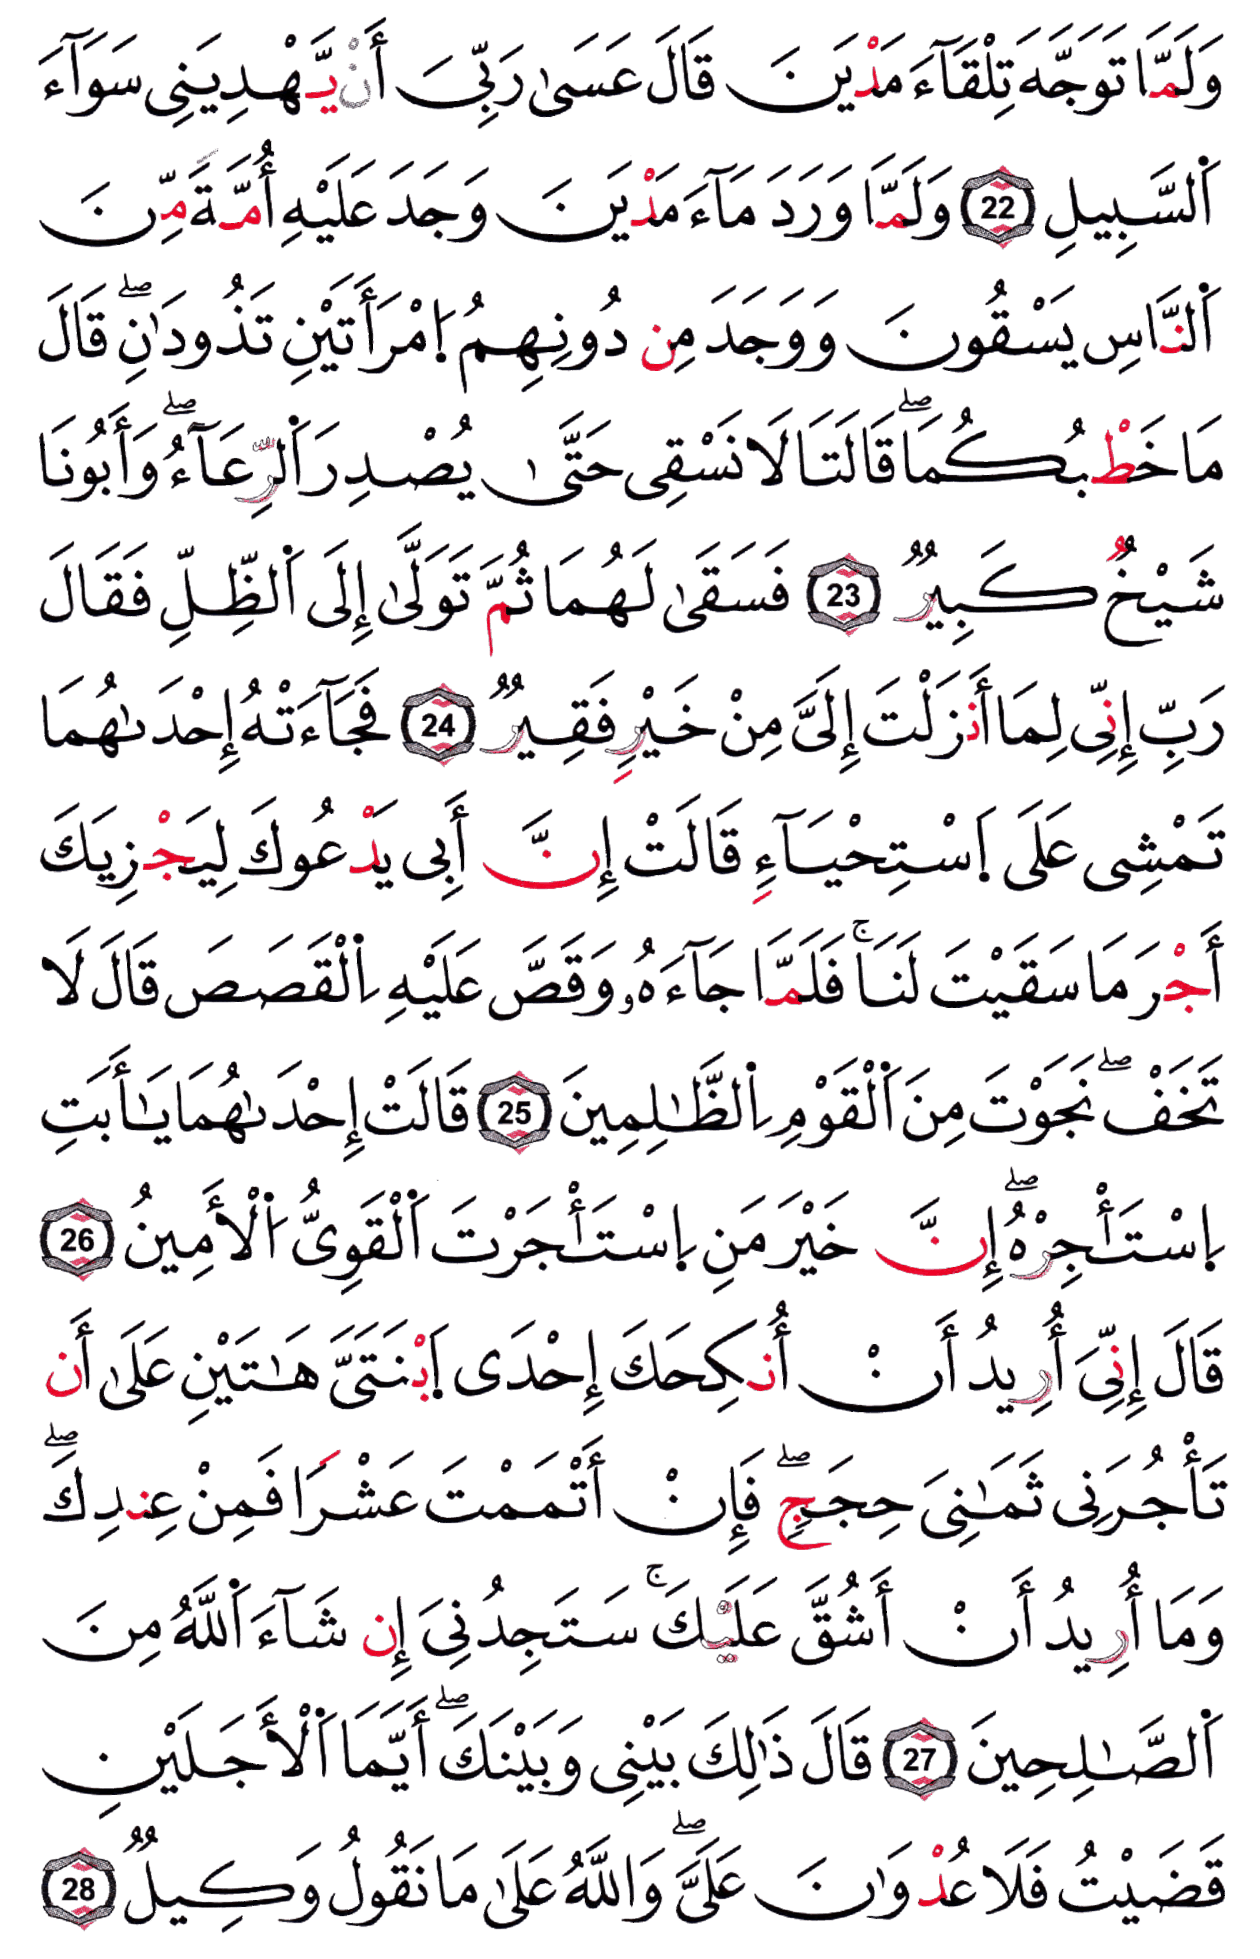 وَلَمَّا تَوَجَّهَ تِلْقَآءَ مَدْيَنَ قَالَ عَسَىٰ رَبِّىَ أَنْ يَّهْدِيَنِى سَوَآءَ
اَ۬لسَّبِيلِ 22 وَلَمَّا وَرَدَ مَآءَ مَدْيَنَ وَجَدَ عَلَيْهِ أُمَّةً مِّنَ
اَ۬لنَّاسِ يَسْقُونَ وَوَجَدَ مِن دُونِهِمُ اُ۪مْرَأَتَيْنِ تَذُودَٰنِۖ قَالَ
مَا خَطْبُكُمَاۖ قَالَتَا لَا نَسْقِى حَتَّىٰ يُصْدِرَ اَ۬لرِّعَآءُۖ وَأَبُونَا
شَيْخٌ كَبِيرٌ 23 فَسَقَىٰ لَهُمَا ثُمَّ تَوَلَّىٰ إِلَى اَ۬لظِّلِّ فَقَالَ
رَبِّ إِنِّى لِمَا أَنزَلْتَ إِلَىَّ مِنْ خَيْرٍ فَقِيرٌ 24 فَجَآءَتْهُ إِحْدَىٰهُمَا
تَمْشِى عَلَى اَ۪سْتِحْيَآءٍ قَالَتْ إِنَّ أَبِى يَدْعُوكَ لِيَجْزِيَكَ
أَجْرَ مَا سَقَيْتَ لَنَاۚ فَلَمَّا جَآءَهُۥ وَقَصَّ عَلَيْهِ اِ۬لْقَصَصَ قَالَ لَا
تَخَفْۖ نَجَوْتَ مِنَ اَ۬لْقَوْمِ اِ۬لظَّٰلِمِينَ 25 قَالَتْ إِحْدَىٰهُمَا يَٰأَبَتِ
اِ۪سْتَأْجِرْهُۖ إِنَّ خَيْرَ مَنِ اِ۪سْتَأْجَرْتَ اَ۬لْقَوِىُّ اُ۬لْأَمِينُ 26
قَالَ إِنِّىَ أُرِيدُ أَنْ أُنكِحَكَ إِحْدَى اَ۪بْنَتَىَّ هَٰتَيْنِ عَلَىٰ أَن
تَأْجُرَنِى ثَمَٰنِىَ حِجَجٍۖ فَإِنْ أَتْمَمْتَ عَشْرًا فَمِنْ عِندِكَۖ
وَمَا أُرِيدُ أَنْ أَشُقَّ عَلَيْكَۚ سَتَجِدُنِىَ إِن شَآءَ اَ۬للَّهُ مِنَ
اَ۬لصَّٰلِحِينَ 27 قَالَ ذَٰلِكَ بَيْنِى وَبَيْنَكَۖ أَيَّمَا اَ۬لْأَجَلَيْنِ
قَضَيْتُ فَلَا عُدْوَٰنَ عَلَىَّۖ وَاللَّهُ عَلَىٰ مَا نَقُولُ وَكِيلٌ 28